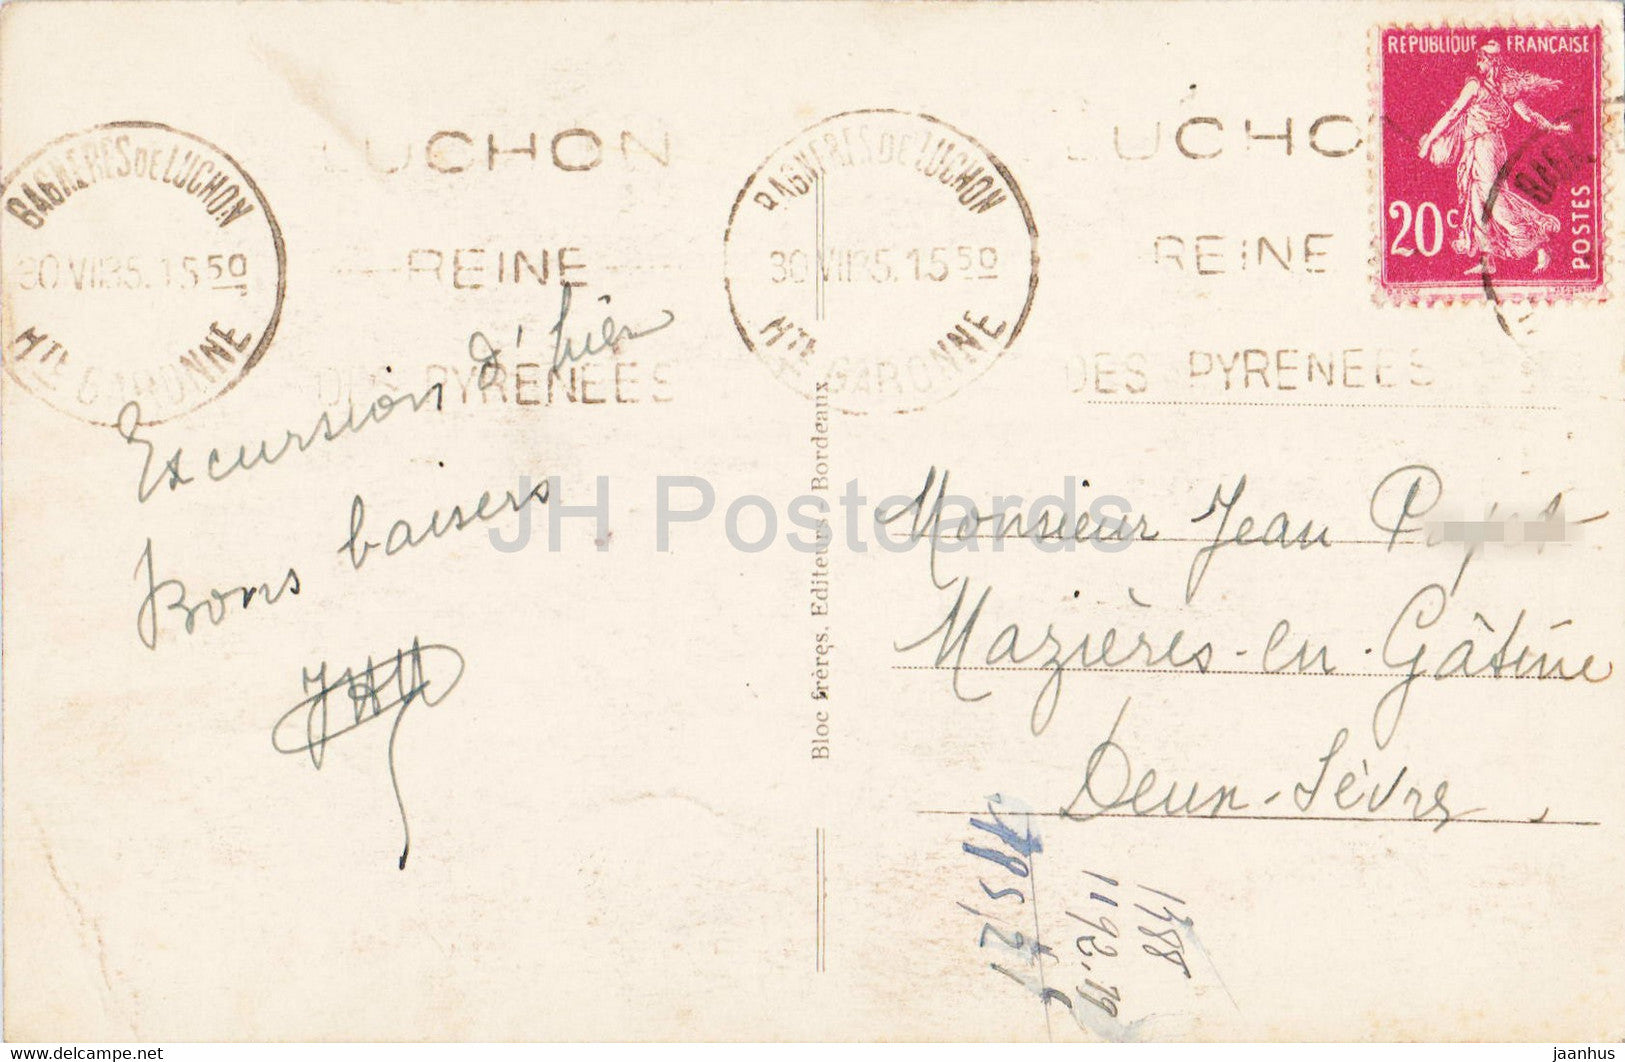 REPUBLIQUE FRANÇAISE
20c
POSTES
BAGNERES DE LUCHON
30 VII 35. 15 50
HTE GARONNE
LUCHON
REINE
DES PYRENEES
BAGNERES DE LUCHON
30 VII 35. 15 50
HTE GARONNE
LUCHO
REINE
DES PYRENEES
Excursion d'hier
Bons baisers
Bloc frères, Editeurs - Bordeaux
Monsieur Jean
Mazières-en-Gâtine
Deux-Sèvres
1388
1192.19
JH Postcards
www.delcampe.net
jaanhus